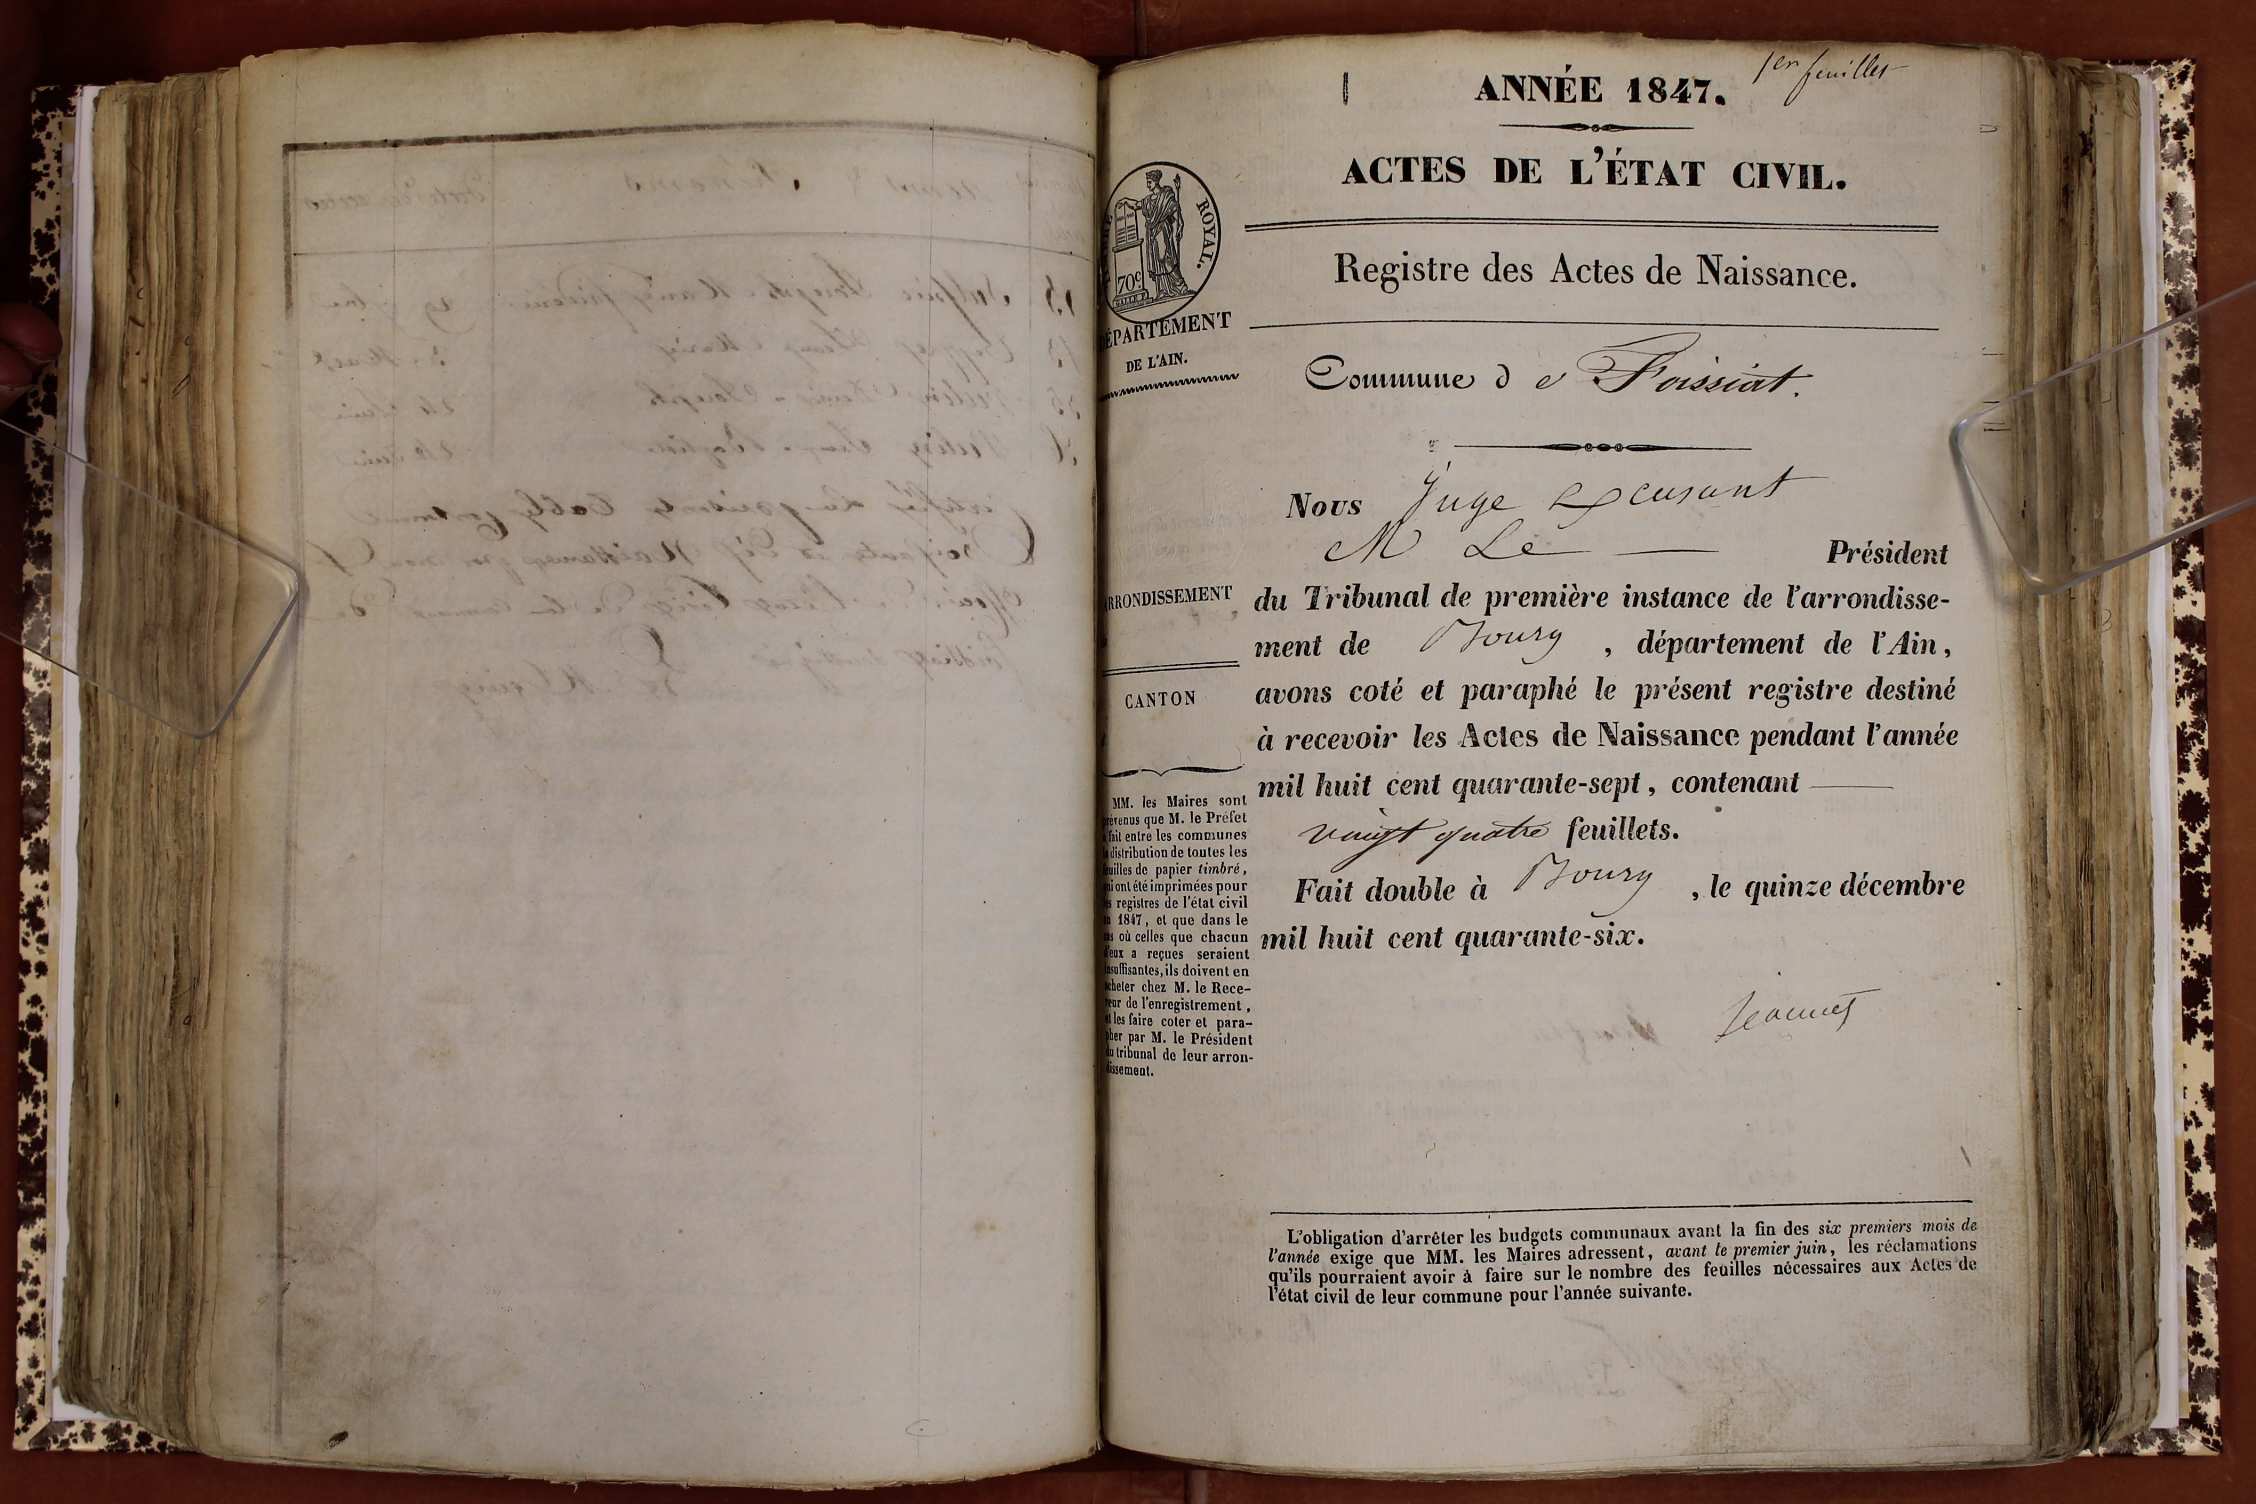 1er feuillet
ANNÉE 1847.
ACTES DE L'ÉTAT CIVIL.
ROYAL.
70c
Registre des Actes de Naissance.
DÉPARTEMENT
DE L'AIN.
Commune de Foissiat.
Nous Juge excusant
M Le — Président
du Tribunal de première instance de l'arrondisse-
ment de Bourg, département de l'Ain,
avons coté et paraphé le présent registre destiné
à recevoir les Actes de Naissance pendant l'année
mil huit cent quarante-sept, contenant —
vingt quatre feuillets.
Fait double à Bourg, le quinze décembre
mil huit cent quarante-six.
Jeannet
ARRONDISSEMENT
CANTON
MM. les Maires sont
prévenus que M. le Préfet
a fait entre les communes
la distribution de toutes les
feuilles de papier timbré,
qui ont été imprimées pour
les registres de l'état civil
en 1847, et que dans le
cas où celles que chacun
d'eux a reçues seraient
insuffisantes, ils doivent en
acheter chez M. le Rece-
veur de l'enregistrement,
et les faire coter et para-
pher par M. le Président
du tribunal de leur arron-
dissement.
L'obligation d'arrêter les budgets communaux avant la fin des six premiers mois de
l'année exige que MM. les Maires adressent, avant le premier juin, les réclamations
qu'ils pourraient avoir à faire sur le nombre des feuilles nécessaires aux Actes de
l'état civil de leur commune pour l'année suivante.